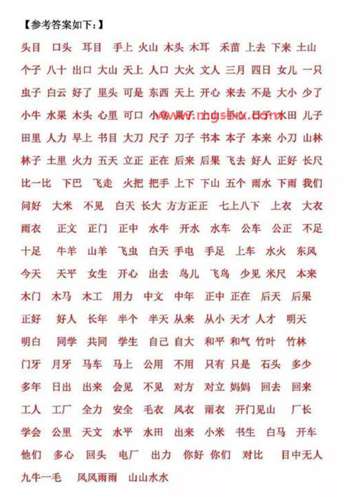 【参考答案如下:】
头目 口头 耳目 手上 火山 木头 木耳 禾苗 上去 下来 土山
个子 八十 出口 大山 天上 人口 大火 火文 人三 月四 日女 儿一只
虫子 白云 好了 里头 可是 东西 天上 开心 来去 不是 大小 少了
小牛 水果 木头 心里 可口 小鸟 日子 水田 儿子
田里 人力 早上 书目 大刀 尺子 刀子 书本 本子 本来 小刀 山林
林子 土里 火力 五天 立正 正在 后来 后果 飞去 好人 正好 长尺
比一比 下巴 飞走 火把 把手 上下 下山 五个 雨水 下雨 我们
问好 大米 不见 白天 长大 方方正正 七上八下 上衣 大衣
雨衣 正文 正门 正中 水牛 开水 水车 公车 公正 不足
十足 牛羊 山羊 飞虫 白天 手电 手足 上车 水火 东风
今天 天平 女生 开心 出去 鸟儿 飞鸟 少见 米尺 本来
木门 木马 木工 用力 中文 中年 正中 在后 后天 后果
正好 好人 长年 半个 半天 从来 从小 天才 人才 明天
明白 同学 共同 学生 自己 自大 和平 和气 竹叶 竹林
门牙 月牙 马车 马上 公用 不用 只有 只是 石头 多少
多年 日出 出来 会见 不见 对方 对立 妈妈 回去 回来
工人 工厂 全力 安全 毛衣 风衣 雨衣 开门见山 厂长
学会 公里 天文 水平 水田 出来 小米 书生 白马 开车
他们 多心 回头 电厂 出力 你好 你们 对比 目中无人
九牛一毛 风风雨雨 山山水水